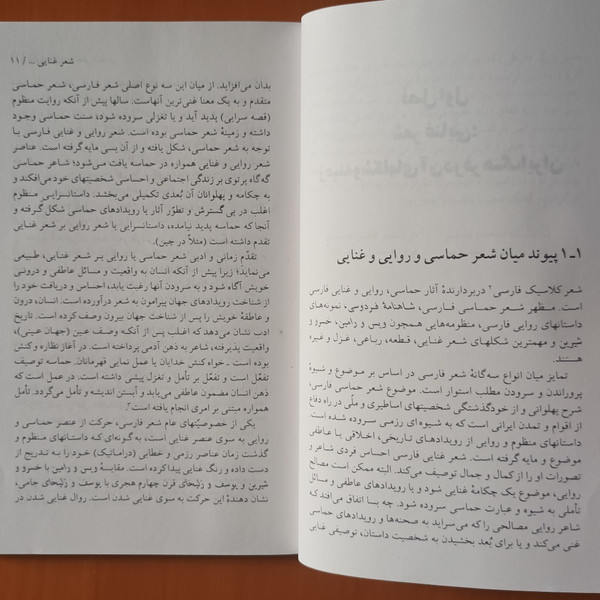 ۱ـ۱ پیوند میان شعر حماسی و روایی و غنایی
شعر کلاسیک فارسی۲ دربردارندهٔ آثار حماسی، روایی و غنایی فارسی
است. مظهر شعر حماسی فارسی، شاهنامهٔ فردوسی، نمونه‌های
داستانهای روایی فارسی، منظومه‌هایی همچون ویس و رامین، خسرو و
شیرین و مهمترین شکلهای شعر غنایی، قطعه، رباعی، غزل و غیره
هستند.
تمایز میان انواع سه‌گانهٔ شعر فارسی در اساس بر موضوع و شیوهٔ
پروراندن و سرودن مطلب استوار است. موضوع شعر حماسی فارسی،
شرح پهلوانی و از خودگذشتگی شخصیتهای اساطیری و ملّی در راه دفاع
از اقوام و تمدن ایرانی است که به شیوه‌ای رزمی سروده شده است.
داستانهای منظوم و روایی از رویدادهای تاریخی، اخلاقی یا عاطفی
موضوع و مایه گرفته است. شعر غنایی فارسی احساس فردی شاعر و
تصورات او را از کمال و جمال توصیف می‌کند. البته ممکن است مصالح
روایی، موضوع یک چکامهٔ غنایی شود و یا رویدادهای عاطفی و مسائل
تأملی به شیوه و عبارت حماسی سروده شود. چه بسا اتفاق می‌افتد که
شاعر روایی مصالحی را که می‌سراید به صحنه‌ها و رویدادهای حماسی
غنی می‌کند و یا برای بُعد بخشیدن به شخصیت داستان، توصیفی غنایی
شعر غنایی ... / ۱۱
بدان می‌افزاید. از میان این سه نوع اصلی شعر فارسی، شعر حماسی
متقدم و به یک معنا غنی‌ترین آنهاست. سالها پیش از آنکه روایت منظوم
(قصه سرایی) پدید آید و یا تغزلی سروده شود، سنت حماسی وجود
داشته و زمینهٔ شعر حماسی بوده است. شعر روایی و غنایی فارسی با
توجه به شعر حماسی، شکل یافته و از آن بسی مایه گرفته است. عناصر
شعر روایی و غنایی همواره در حماسه یافت می‌شود؛ شاعر حماسی
گه‌گاه پرتوی بر زندگی اجتماعی و احساسی شخصیتهای خود می‌افکند و
به چکامه و پهلوانان آن بُعدی تکمیلی می‌بخشد. داستانسرایی منظوم
اغلب در پی گسترش و تطوّر آثار یا رویدادهای حماسی شکل گرفته و
آنجا که حماسه پدید نیامده، داستانسرایی یا شعر روایی بر شعر غنایی
تقدم داشته است (مثلاً در چین).
تقدّم زمانی و ادبی شعر حماسی یا روایی بر شعر غنایی، طبیعی
می‌نماید؛ زیرا پیش از آنکه انسان به واقعیت و مسائل عاطفی و درونی
خویش آگاه شود و به سرودن آنها رغبت یابد، احساس و دریافت خود را
از شناخت رویدادهای جهان پیرامون به شعر درآورده است. انسان، درون و
عاطفهٔ خویش را پس از شناخت جهان بیرون وصف کرده است. تاریخ
ادب نشان می‌دهد که اغلب پس از آنکه وصف عین (جهان عینی)،
واقعیت پذیرفته، شاعر به ذهن آدمی پرداخته است. در آغاز نظاره و کنش
بوده است ـ خواه کنش خدایان یا عمل نمایی قهرمانان. حماسه توصیف
تفعّل است و تفعّل بر تأمل و تغزل پیشی داشته است. در عمل است که
ذهن انسان مضمون عاطفی می‌یابد و آبستن اندیشه و تأمل می‌گردد. تأمل
همواره مبتنی بر امری انجام یافته است.
یکی از خصوصیّتهای عام شعر فارسی، حرکت از عنصر حماسی و
روایی به سوی عنصر غنایی است، به گونه‌ای که داستانهای منظوم و
گذشت زمان عناصر رزمی و خطابی (دراماتیک) خود را به تدریج از
دست داده و رنگ عنایی پیدا کرده است. مقایسهٔ ویس و رامین با خسرو و
شیرین و یوسف و زلیخای قرن چهارم هجری با یوسف و زلیخای جامی،
نشان دهندهٔ این حرکت به سوی غنایی شدن است. روال غنایی شدن در